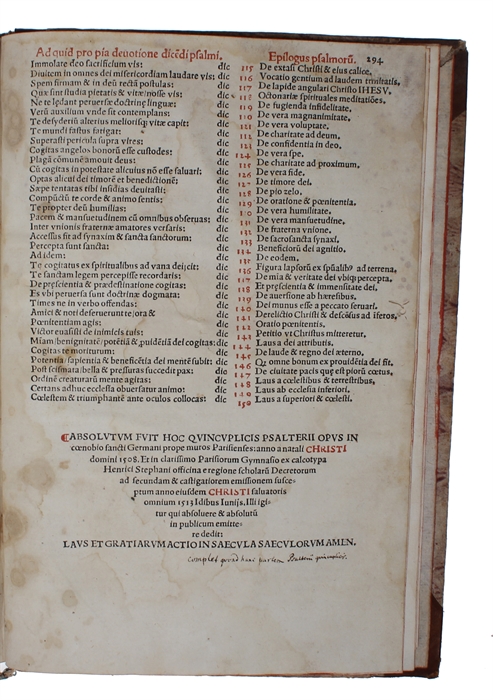 Ad quid pro pia deuotione dicēdi psalmi. Epilogus psalmorū. 294
Immolare deo sacrificium vis: dic 115 De extasi Christi & eius calice.
Diuitem in omnes dei misericordiam laudare vis: dic 116 Vocatio gentium ad laudem trinitatis.
Spem firmam & in deū rectā postulas: dic 117 De lapide angulari Christo IHESV.
Quæ sint studia pietatis & vitæ nosse vis: dic 118 Octonariæ spirituales meditatiões.
Ne te lędant peruersæ doctrinę linguæ: dic 119 De fugienda infidelitate.
Verū auxilium vnde sit contemplans: dic 120 De vera magnanimitate.
Te desyderiū alterius meliorisq; vitæ capit: dic 121 De vera voluptate.
Te mundi fastus fatigat: dic 122 De charitate ad deum.
Superasti pericula supra vires: dic 123 De confidentia in deo.
Cogitas angelos bonorū esse custodes: dic 124 De vera spe.
Plagā cōmunē amouit deus: dic 125 De charitate ad proximum.
Cū cogitas in potestate alicuius nō esse saluari: dic 126 De vera fide.
Optas alicui dei timorē et benedictionē: dic 127 De timore dei.
Sæpe tentatas tibi insidias deuitasti: dic 128 De pio zelo.
Compūctū te corde & animo sentis: dic 129 De oratione & pœnitentia.
Te propter deū humilias: dic 130 De vera humilitate.
Pacem & mansuetudinem cū omnibus obseruas: dic 131 De vera mansuetudine,
Inter vnionis fraternæ amatores versaris: dic 132 De fraterna vnione.
Accessus sit ad synaxim & sancta sanctorum: dic 133 De sacrosancta synaxi.
Percepta sunt sancta: dic 134 Beneficiorū dei agnitio.
Ad idem: dic 135 De eodem.
Te cogitatus ex spiritualibus ad vana deijcit: dic 136 Figura lapsorū ex spūalib9 ad terrena,
Te sanctam legem percepisse recordaris: dic 137 De mia & veritate dei vbiq; percepta,
De pręscientia & prædestinatione cogitas: dic 138 Et pręscientia & immensitate dei.
Es vbi peruersa sunt doctrinæ dogmata: dic 139 De auersione ab hæresibus.
Times ne in verbo offendas: dic 140 De munus esse a peccato seruari.
Amici & noti deseruerunt te/ora & dic 141 Derelictio Christi & descēsus ad īferos,
Pœnitentiam agis: dic 142 Oratio pœnitentis.
Victor euasisti de inimicis tuis: dic 143 Petitio vt Christus mitteretur.
Miam/benignitatē/potētiā & puidētiā dei cogitas: dic 144 Laus a dei attributis.
Cogitas te moriturum: dic 145 De laude & regno dei æterno.
Potentia/sapientia & beneficētia dei mentē subit: dic 146 Qꝫ omne bonum ex prouidētia dei sit.
Post scismata/bella & pressuras succedit pax: dic 147 De ciuitate pacis quę est piorū cœtus,
Ordinē creaturarū mente agitas: dic 148 Laus a cœlestibus & terrestribus,
Certans adhuc ecclesia obuersatur animo: dic 149 Laus ab ecclesia inferiori.
Cœlestem & triumphantē ante oculos collocas: dic 150 Laus a superiori & cœlesti.
¶ABSOLVTVM FVIT HOC QVINCVPLICIS PSALTERII OPVS IN
cœnobio sancti Germani prope muros Parisienses: anno a natali CHRISTI
domini 1508. Et in clarissimo Parisiorum Gymnasio ex calcotypa
Henrici Stephani officina e regione scholarū Decretorum
ad secundam & castigatiorem emissionem susce-
ptum anno eiusdem CHRISTI saluatoris
omnium 1513 Idibus Iunijs. Illi igi-
tur qui absoluere & absolutū
in publicum emitte-
re dedit:
LAVS ET GRATIARVM ACTIO IN SAECVLA SAECVLORVM AMEN.
complet quoad hanc partem Psalterii quincuplicis